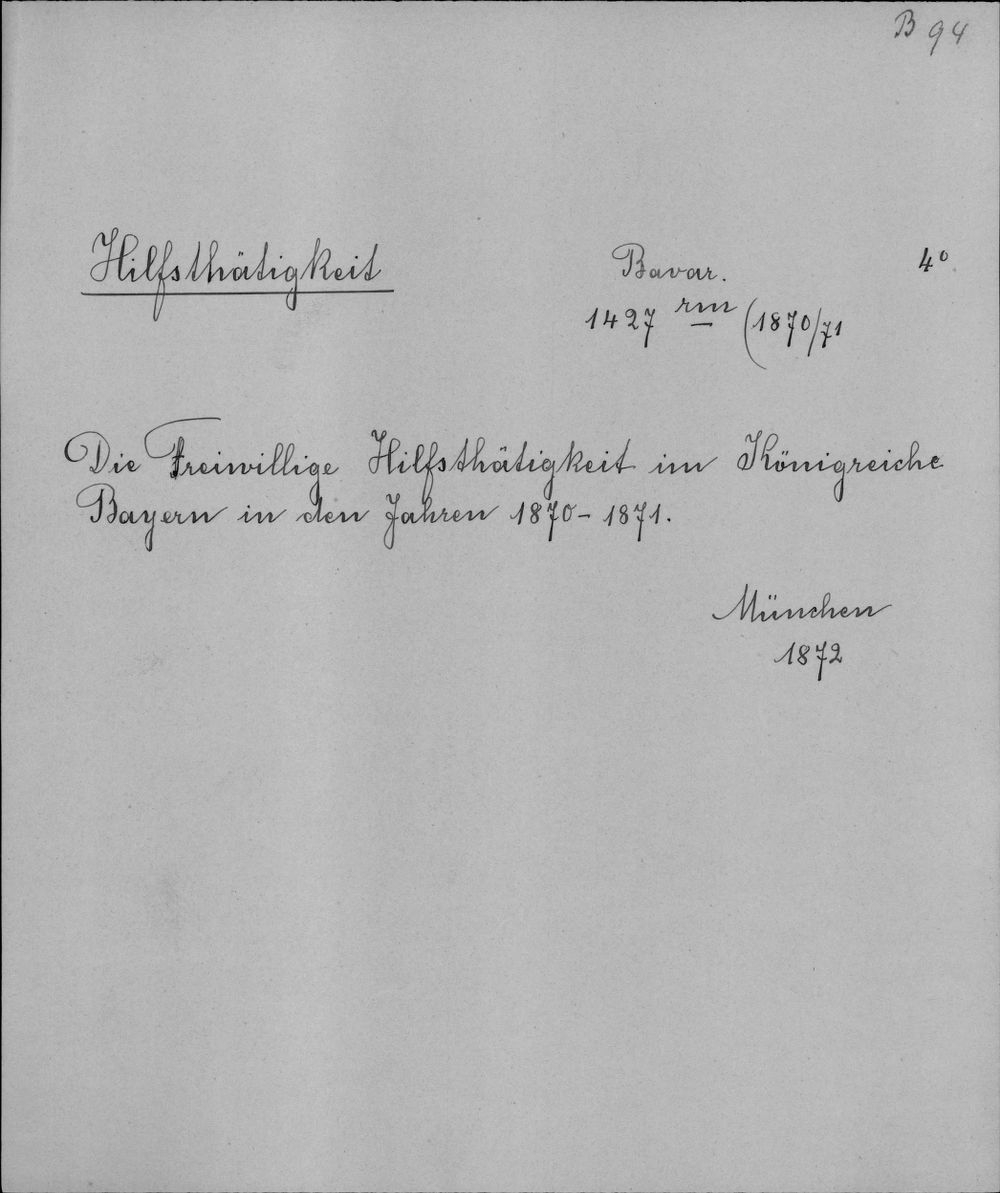 B 94
Hilfsthätigkeit
Bavar. 4°
1427 rm (1870/71
Die Freiwillige Hilfsthätigkeit im Königreiche
Bayern in den Jahren 1870-1871.
München
1872